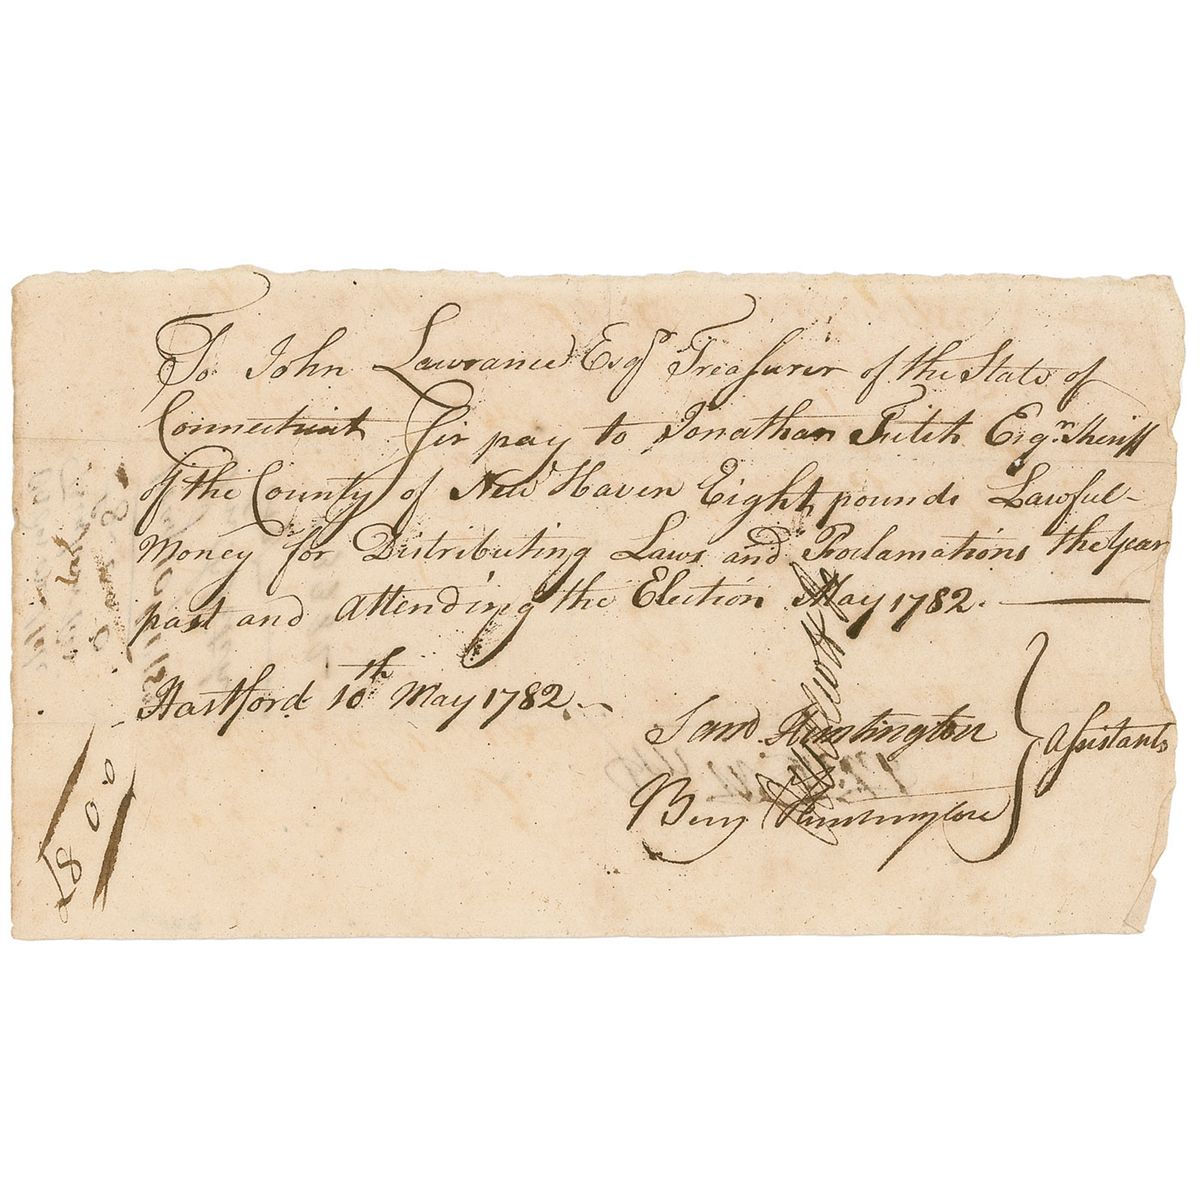 To John Lawrance Esqr Treasurer of the State of
Connecticut Sir pay to Jonathan Fitch Esqr Sheriff
of the County of New Haven Eight pounds Lawful
Money for Distributing Laws and Proclamations the Year
past and Attending the Election May 1782.
Hartford 10th May 1782
Saml Huntington
Benj Huntington
Assistants
£8 0 0